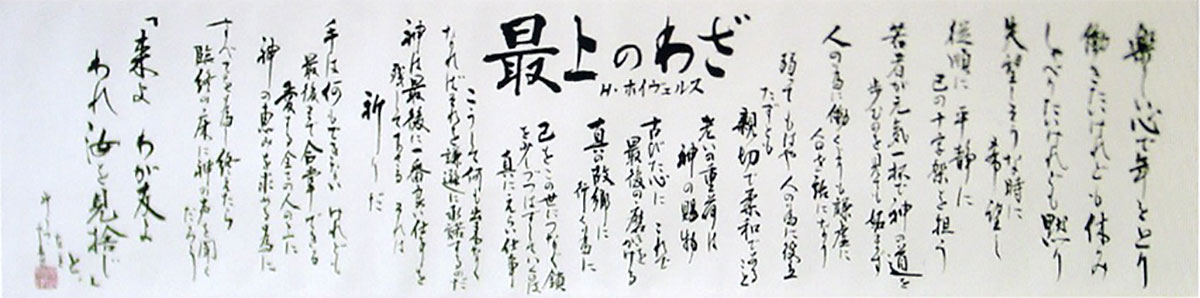 最上のわざ
H・ホイヴェルス
楽しい心で年をとり
働きたいけれども休み
しゃべりたいけれども黙り
失望しそうな時に
希望し
従順に 平静に
己の十字架を担う
若者が元気一杯で神の道を
歩むのを見ても妬まず
人の為に働くよりも謙虚に
人の世話になり
弱って もはや 人の為に役立
たずとも
親切で柔和であること
老いの重荷は
神の賜物
古びた心に これで
最後の磨きをかける
真の故郷に
行く為に
己をこの世につなぐ鎖
を少しづつはずしていくのは
真にえらい仕事
こうして何も出来なく
なればそれを謙遜に承諾するのだ
神は最後に一番良い仕事を
残して下さる それは
祈りだ
手は何もできない けれども
最後まで合掌できる
愛する全ての人の上に
神の恵みを求める為に
すべてを為し終えたら
臨終の床に神の声を聞く
だろう
「来よ わが友よ
われ汝を見捨てじ
と